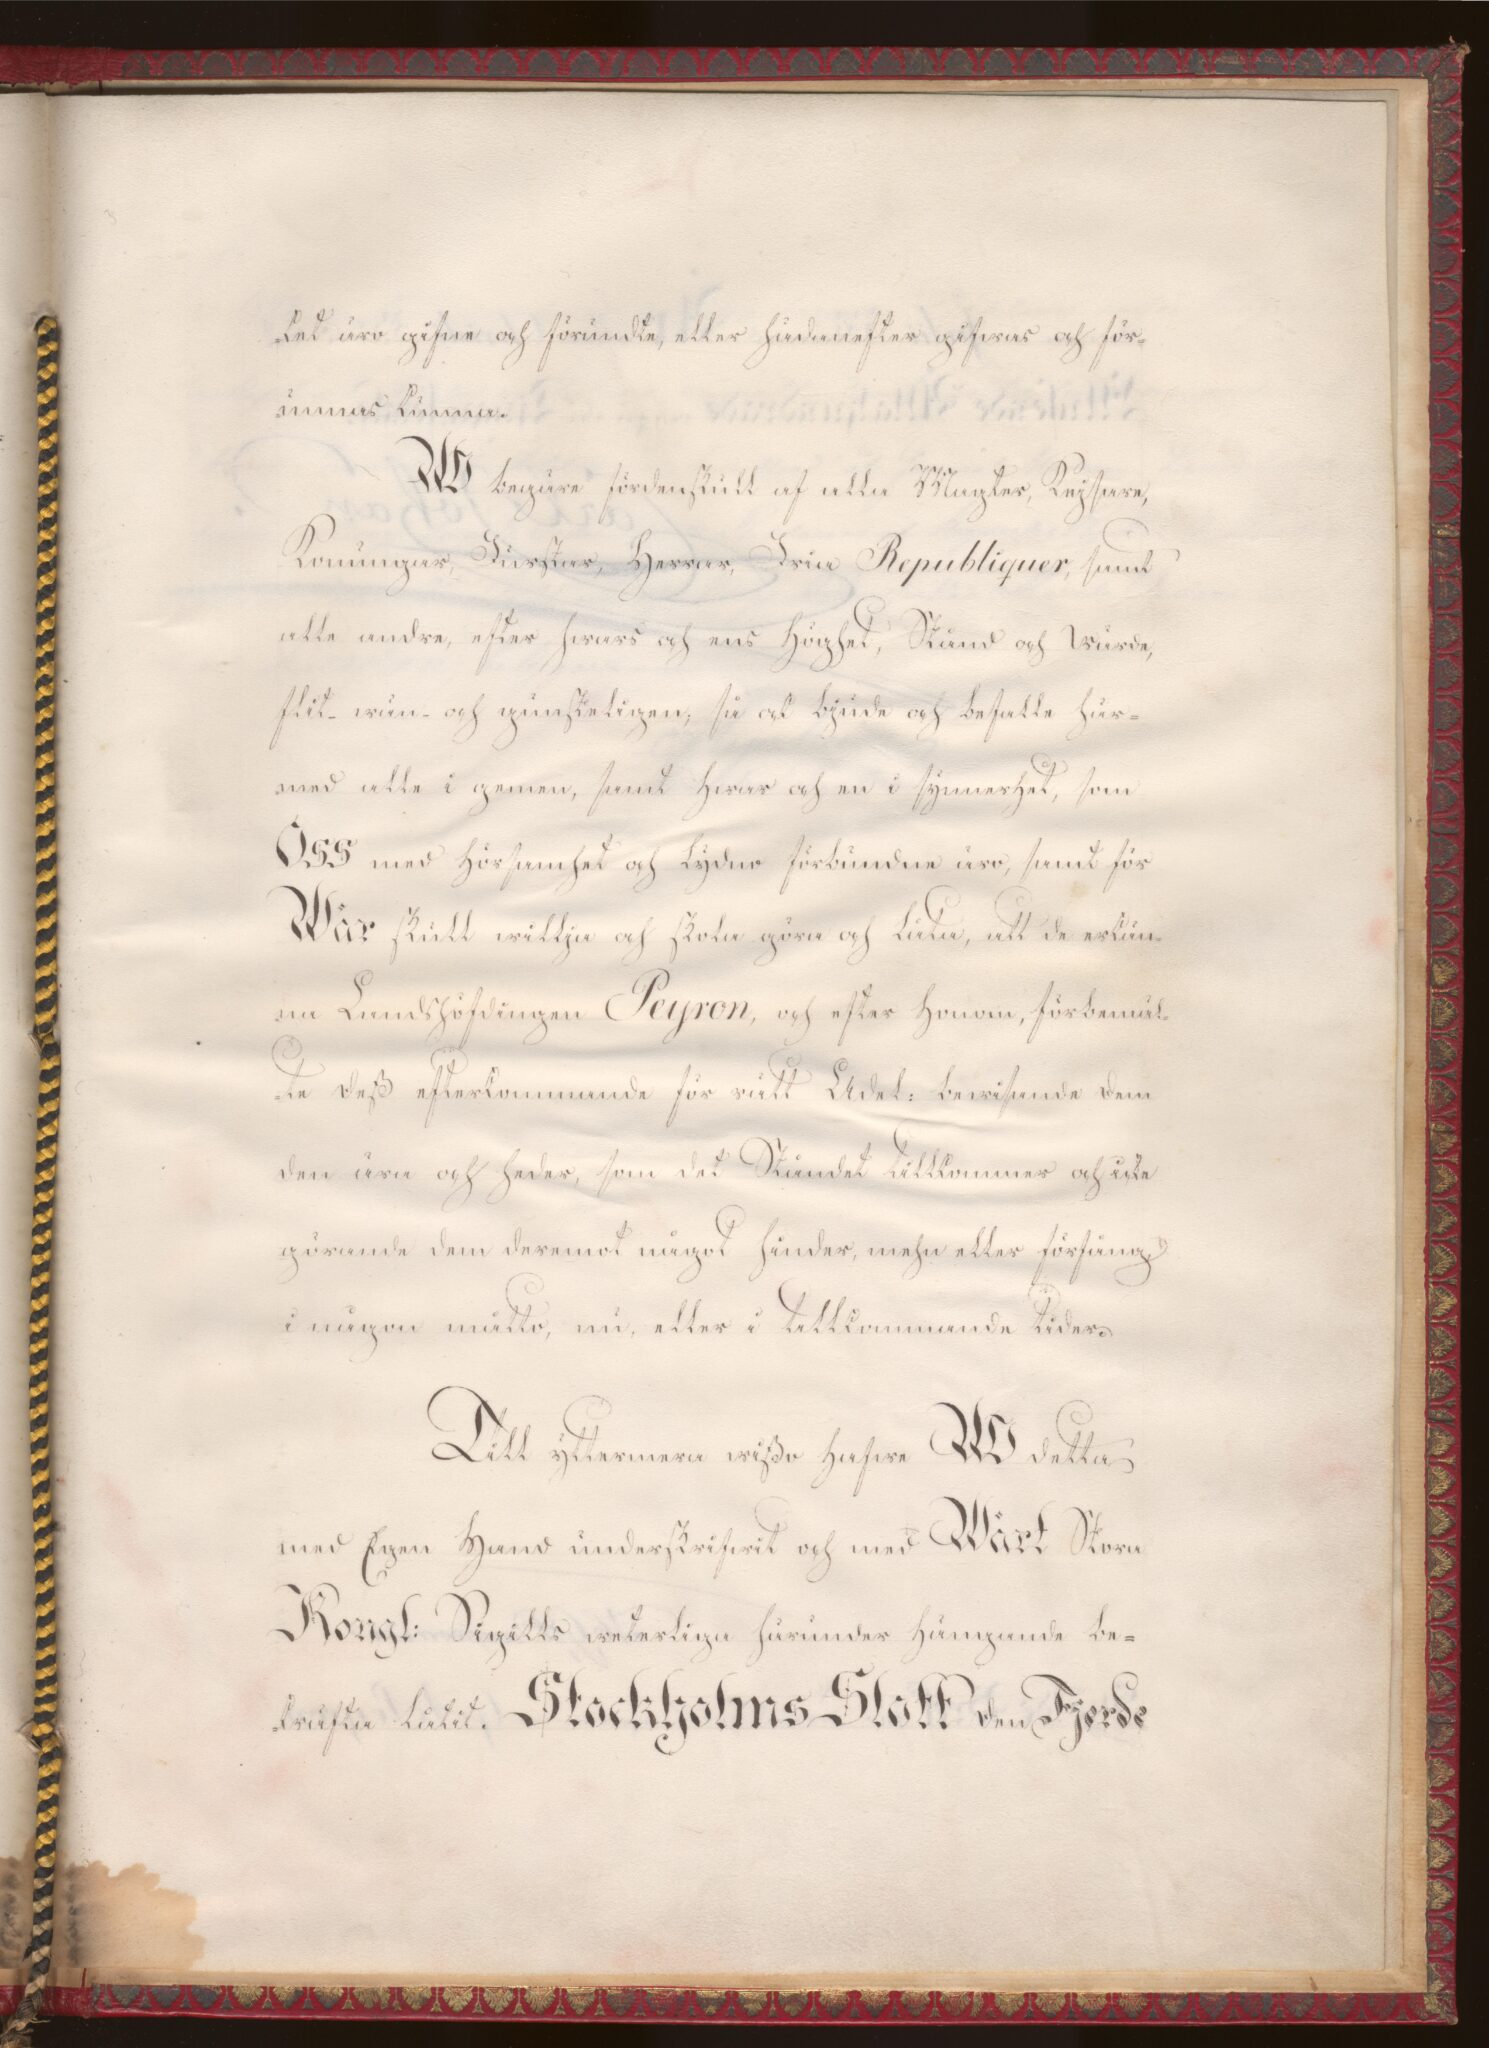 let äro gifne och förundte, eller hädanefter gifwas och för-
unnas kunna.
Wi begäre fördenskull af alla Magter, Keysare,
Konungar, Furstar, Herrar, Fria Republiquer, samt
alle andre, efter hwars och ens Höghet, Stånd och Wärde,
flit- wän- och gunsteligen, så ock bjude och befalle här-
med alle i gemen, samt hwar och en i synnerhet, som
Oss med Hörsamhet och Lydno förbundne äro, samt för
Wår skull willja och skola göra och låta, att de erkän-
na Landshöfdingen Peyron, och efter Honom, förbemäl-
te dess efterkommande för rätt Adel: bewisande dem
den ära och heder, som det Ståndet tillkommer och icke
görande dem deremot något hinder, mehn eller förfång
i någon måtto, nu, eller i tillkommande tider.
Till yttermera wisso hafwe Wi detta
med Egen Hand underskrifwit och med Wårt Stora
Kongl: Sigills weterliga härunder hängande be-
kräfta låtit. Stockholms Slott den Fjerde